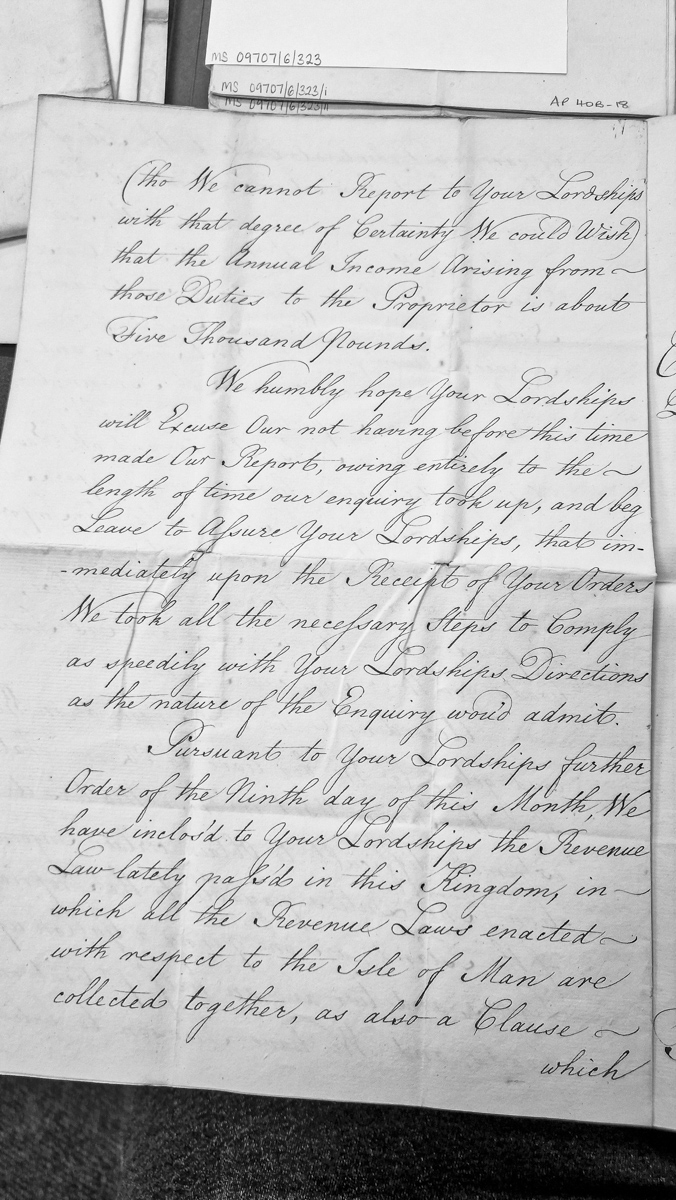 MS 09707/6/323
MS 09707/6/323/i
MS 09707/6/323/ii
AP 40B-18
(tho We cannot Report to Your Lordships
with that degree of Certainty We could Wish)
that the Annual Income Arising from ~
those Duties to the Proprietor is about
Five Thousand Pounds.
We humbly hope Your Lordships
will Excuse Our not having before this time
made Our Report, owing entirely to the ~
length of time our enquiry took up, and beg
Leave to Aſsure Your Lordships, that im-
-mediately upon the Receipt of Your Orders
We took all the neceſsary Steps to Comply
as speedily with Your Lordships Directions
as the nature of the Enquiry wou'd admit.
Pursuant to Your Lordships further
Order of the Ninth day of this Month, We
have inclos'd to Your Lordships the Revenue
Law lately paſs'd in this Kingdom, in ~
which all the Revenue Laws enacted ~
with respect to the Isle of Man are
collected together, as also a Clause ~
which